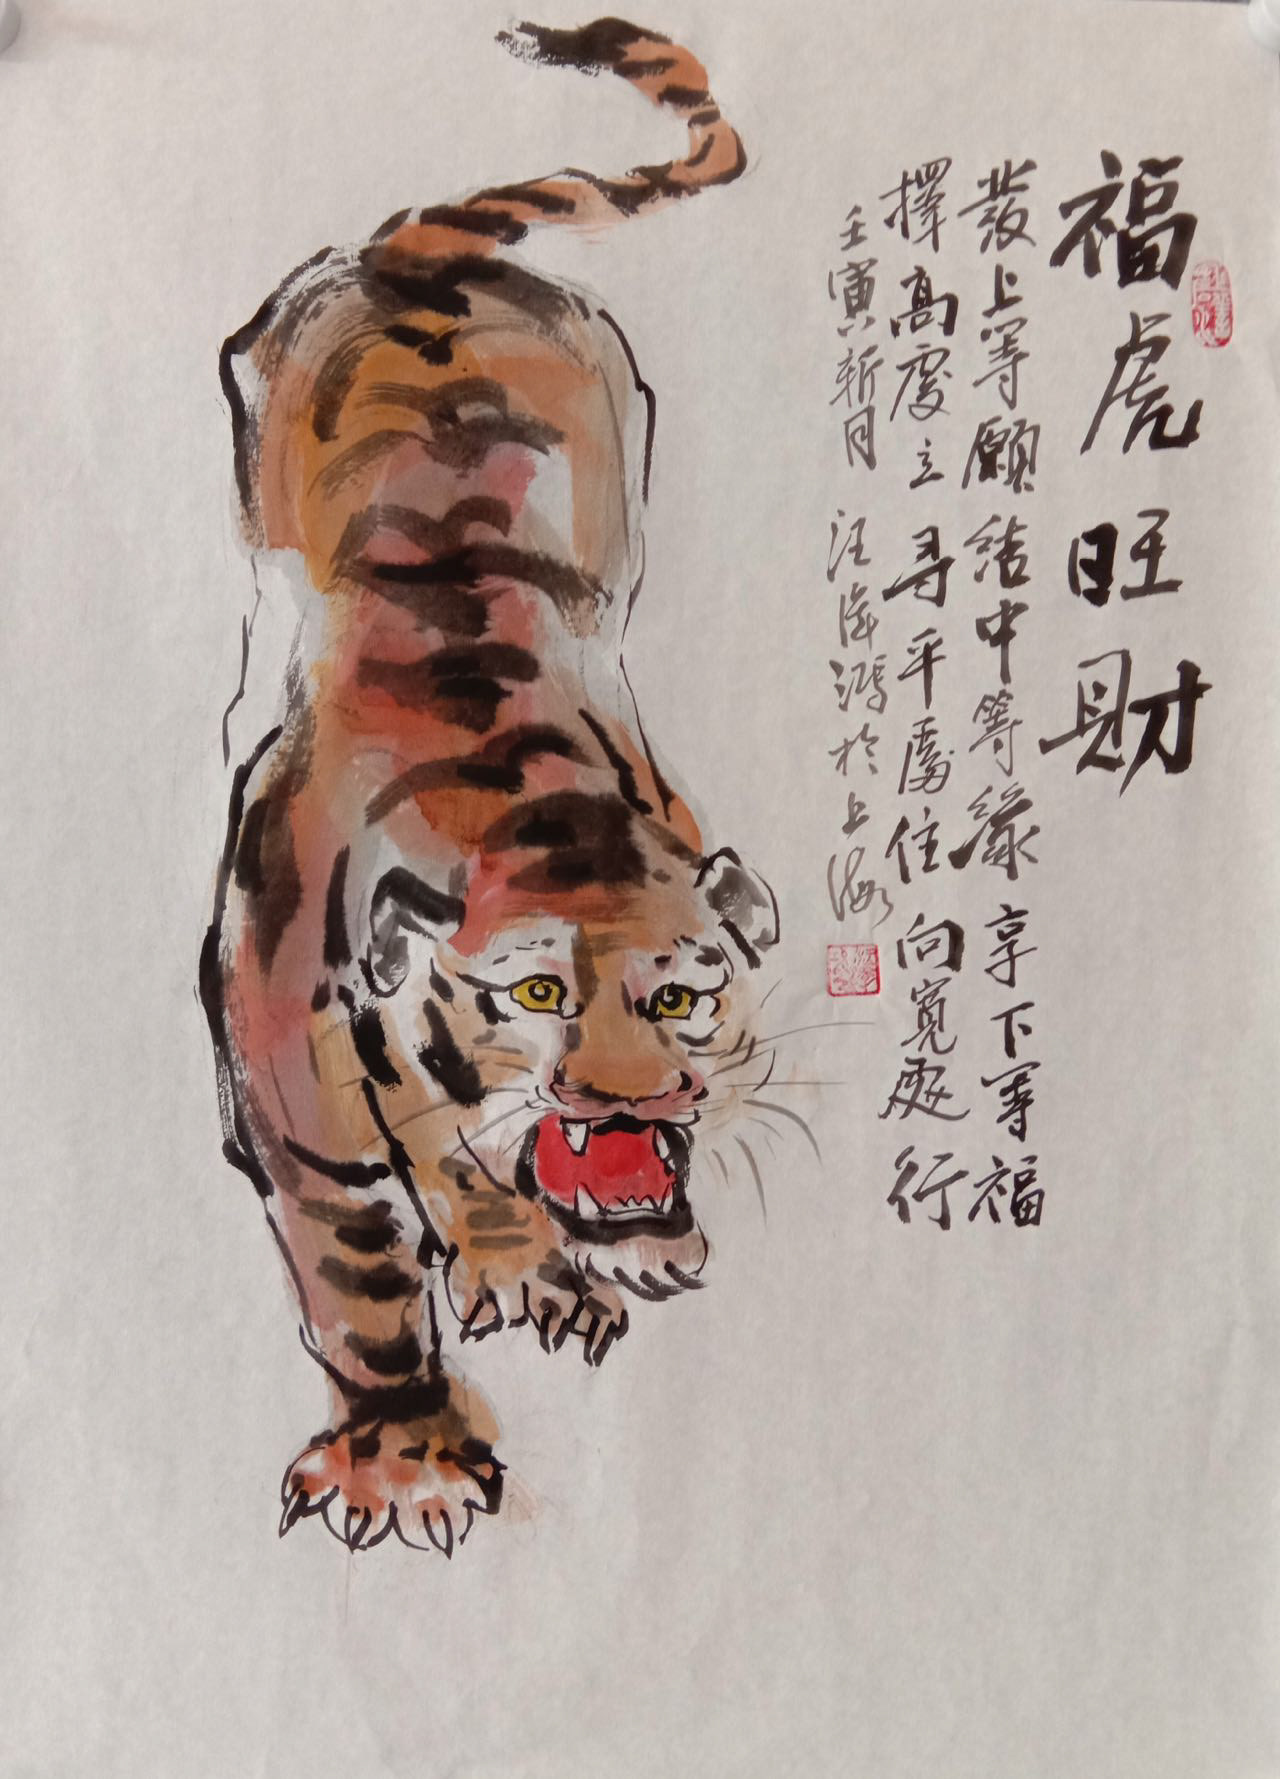 福虎旺財
發上等願結中等緣享下等福
擇高處立尋平處住向寬處行
壬寅新月 汪海鴻於上海